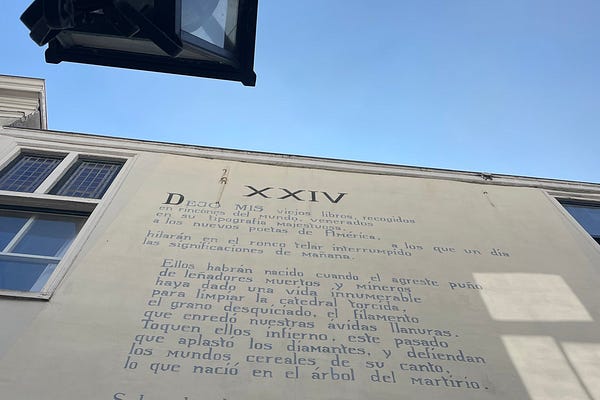 XXIV
DEJO MIS viejos libros, recogidos
en rincones del mundo, venerados
en su tipografía majestuosa,
a los nuevos poetas de América,
a los que un día
hilarán en el ronco telar interrumpido
las significaciones de mañana.
Ellos habrán nacido cuando el agreste puño
de leñadores muertos y mineros
haya dado una vida innumerable
para limpiar la catedral torcida,
el grano desquiciado, el filamento
que enredó nuestras ávidas llanuras.
Toquen ellos infierno, este pasado
que aplastó los diamantes, y defiendan
los mundos cereales de su canto,
lo que nació en el árbol del martirio.